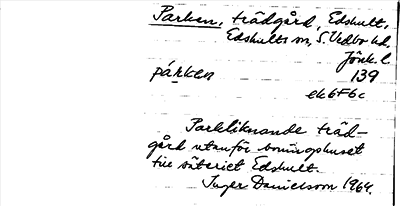 Parken, trädgård, Edshult,
Edshults sn, S. Vedbo hd,
Jönk. l.
párken 139
ek6F6c
Parkliknande träd-
gård utanför boningshuset
till säteriet Edshult.
Inger Danielsson 1964.